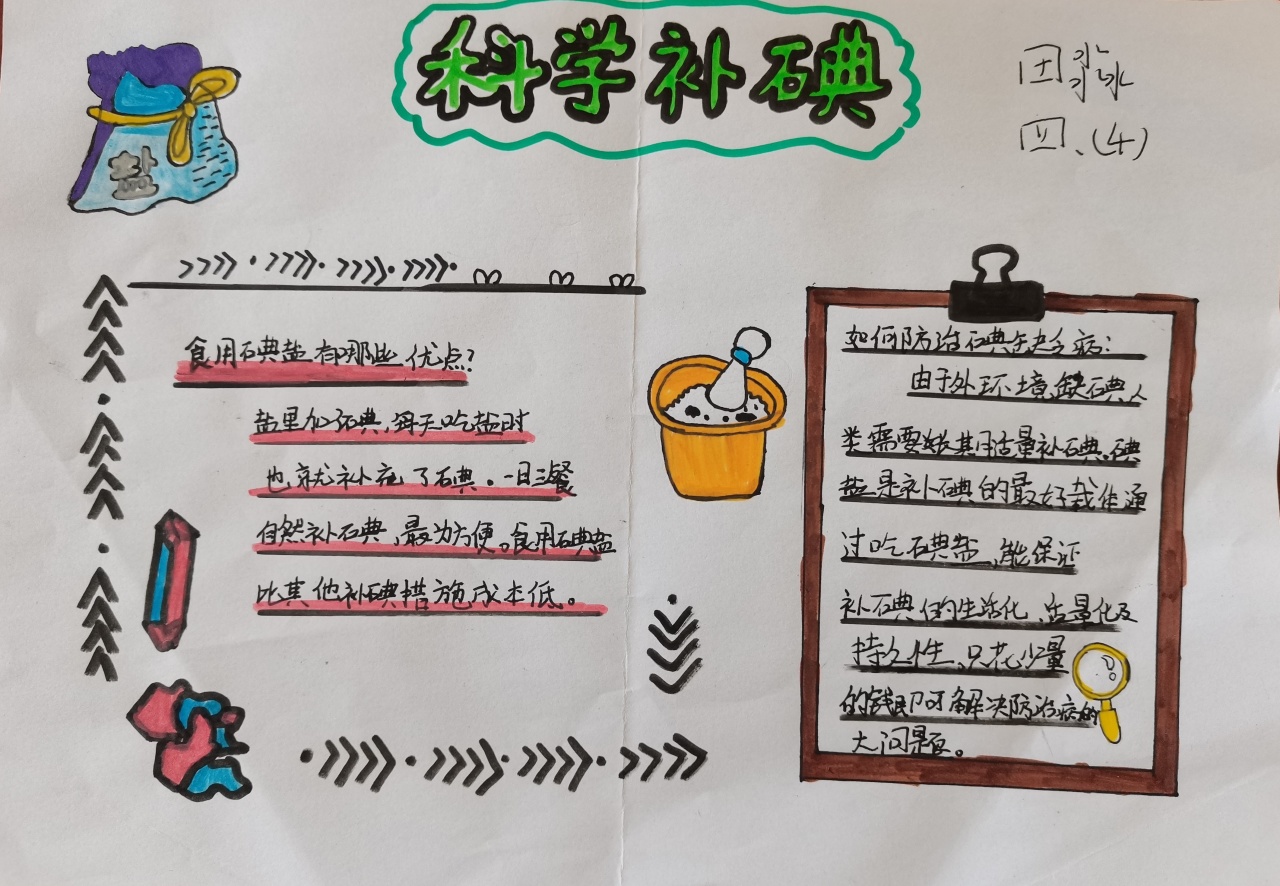 科学补碘
田淼
四、(4)
盐
食用碘盐有哪些优点?
盐里加碘,每天吃盐时
也就补充了碘。一日三餐
自然补碘,最为方便。食用碘盐
比其他补碘措施成本低。
如何防治碘缺乏病:
由于外环境缺碘,人
类需要长期适量补碘。碘
盐是补碘的最好载体通
过吃碘盐,能保证
补碘的生活化,适量化及
持久性、只花少量
的钱即可解决防治病的
大问题。